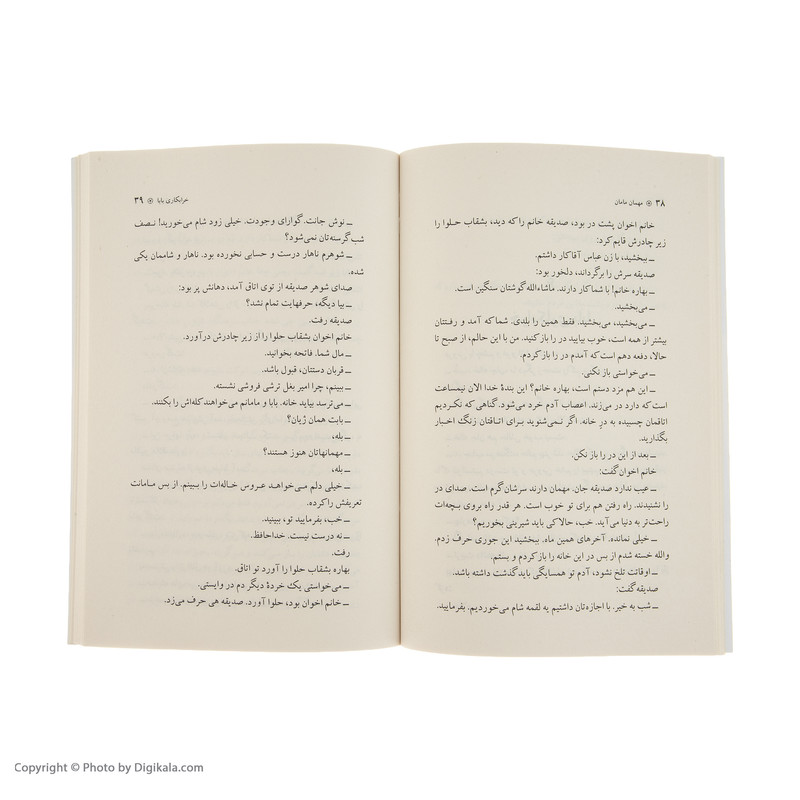 ۳۸ ◉ مهمان مامان
خانم اخوان پشت در بود، صدیقه خانم را که دید، بشقاب حلوا را
زیر چادرش قایم کرد:
ــ ببخشید، با زن عباس آقا کار داشتم.
صدیقه سرش را برگرداند، دلخور بود:
ــ بهاره خانم! با شما کار دارند. ماشاءالله گوشتان سنگین است.
ــ می‌بخشید.
ــ می‌بخشید، می‌بخشید. فقط همین را بلدی. شما که آمد و رفتتان
بیشتر از همه است، خوب بیایید در را باز کنید. من با این حالم، از صبح تا
حالا، دفعه دهم است که آمدم در را باز کردم.
ــ می‌خواستی باز نکنی.
ــ این هم مزد دستم است، بهاره خانم؟ این بندهٔ خدا الان نیمساعت
است که دارد در می‌زند. اعصاب آدم خرد می‌شود. گناهی که نکردیم
اتاقمان چسبیده به درِ خانه. اگر نمی‌شنوید برای اتاقتان زنگ اخبار
بگذارید.
ــ بعد از این در را باز نکن.
خانم اخوان گفت:
ــ عیب ندارد صدیقه جان. مهمان دارند سرشان گرم است. صدای در
را نشنیدند. راه رفتن هم برای تو خوب است. هر قدر راه بروی بچه‌ات
راحت‌تر به دنیا می‌آید. خب، حالا کی باید شیرینی بخوریم؟
ــ خیلی نمانده. آخرهای همین ماه. ببخشید این جوری حرف زدم.
والله خسته شدم از بس در این خانه را باز کردم و بستم.
ــ اوقاتت تلخ نشود، آدم تو همسایگی باید گذشت داشته باشد.
صدیقه گفت:
ــ شب به خیر. با اجازه‌تان داشتیم یه لقمه شام می‌خوردیم. بفرمایید.
خرابکاری بابا ◉ ۳۹
ــ نوش جانت. گوارای وجودت. خیلی زود شام می‌خورید! نصف
شب گرسنه‌تان نمی‌شود؟
ــ شوهرم ناهار درست و حسابی نخورده بود. ناهار و شاممان یکی
شده.
صدای شوهر صدیقه از توی اتاق آمد، دهانش پر بود:
ــ بیا دیگه، حرفهایت تمام نشد؟
صدیقه رفت.
خانم اخوان بشقاب حلوا را از زیر چادرش درآورد.
ــ مال شما. فاتحه بخوانید.
ــ قربان دستتان، قبول باشد.
ــ ببینم، چرا امیر بغل ترشی فروشی نشسته.
ــ می‌ترسد بیاید خانه. بابا و مامانم می‌خواهند کله‌اش را بکنند.
ــ بابت همان ژیان؟
ــ بله،
ــ مهمانهاتان هنوز هستند؟
ــ بله،
ــ خیلی دلم می‌خواهد عروس خاله‌ات را ببینم. از بس مامانت
تعریفش را کرده.
ــ خب، بفرمایید تو، ببینید.
ــ نه درست نیست. خداحافظ.
رفت.
بهاره بشقاب حلوا را آورد تو اتاق.
ــ می‌خواستی یک خردهٔ دیگر دم در وایستی.
ــ خانم اخوان بود، حلوا آورد. صدیقه هی حرف می‌زد.
Copyright © Photo by Digikala.com